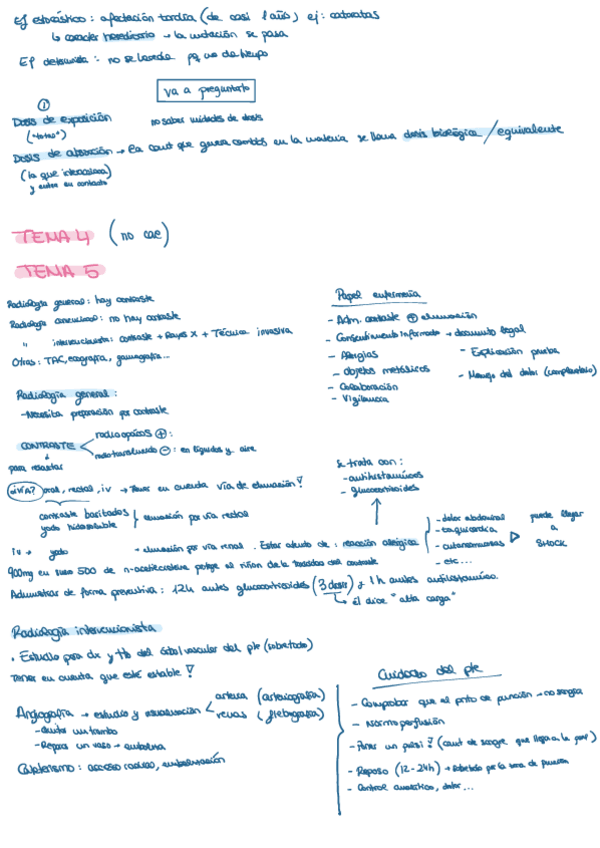 Ef estocástico: afectación tardía (de casi 1 año) ej: cataratas
↳ carácter hereditario → la mutación se pasa
Ef determinista: no se hereda pq no da tiempo
va a preguntarlo
①
Dosis de exposición no saber unidades de dosis
("total")
Dosis de absorción → la cant que genera cambios en la materia se llama dosis biológica / equivalente
(la que interacciona)
y entra en contacto
TEMA 4 (no cae)
TEMA 5
Radiología general: hay contraste
Radiología convencional: no hay contraste
" intervencionista: contraste + Rayos X + Técnica invasiva
Otras: TAC, ecografía, gammagrafía...
Papel enfermería
- Adm. contraste ⊕ eliminación
- Consentimiento informado → documento legal
- Alergias
- Explicación prueba
- objetos metálicos
- Manejo del dolor (complementario)
- Colaboración
- Vigilancia
Radiología general:
- Necesita preparación por contraste
CONTRASTE
radiopacos ⊕:
radiotransluciendo ⊖: en líquidos y aire
para resaltar
¿VÍA? oral, rectal, iv → Tener en cuenta vía de eliminación!
contraste baritados
yodo hidrosoluble } eliminación por vía rectal
se trata con:
- antihistamínicos
- glucocorticoides
iv → yodo → eliminación por vía renal. Estar atento de: reacción alérgica
- dolor abdominal
- taquicardia
- etc...
puede llegar
a
SHOCK
900mg en suero 500 de n-acetilcisteína protege al riñón de la toxicidad del contraste
Administrar de forma preventiva: 12h antes glucocorticoides (3 dosis) y 1h antes antihistamínico.
↳ él dice "alta carga"
Radiología intervencionista
• Estudio para dx y tto del árbol vascular del pte (sobretodo)
Tener en cuenta que esté estable!
Angiografía → estudio y visualización
arteria (arteriografía)
venas (flebografía)
- disolver un trombo
- Reparar un vaso → embolizar
Cateterismo: acceso radial, embolización
Cuidados del pte
- Comprobar que el pnto de punción → no sangra
- Normoperfusión
- Poner un pulsi! (cant de sangre que llega a la )
- Reposo (12-24h) → sobretodo por la zona de punción
- Control analítico, dolor...